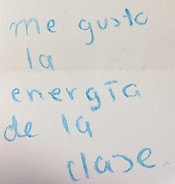 me gusta
la
energía
de la
clase.